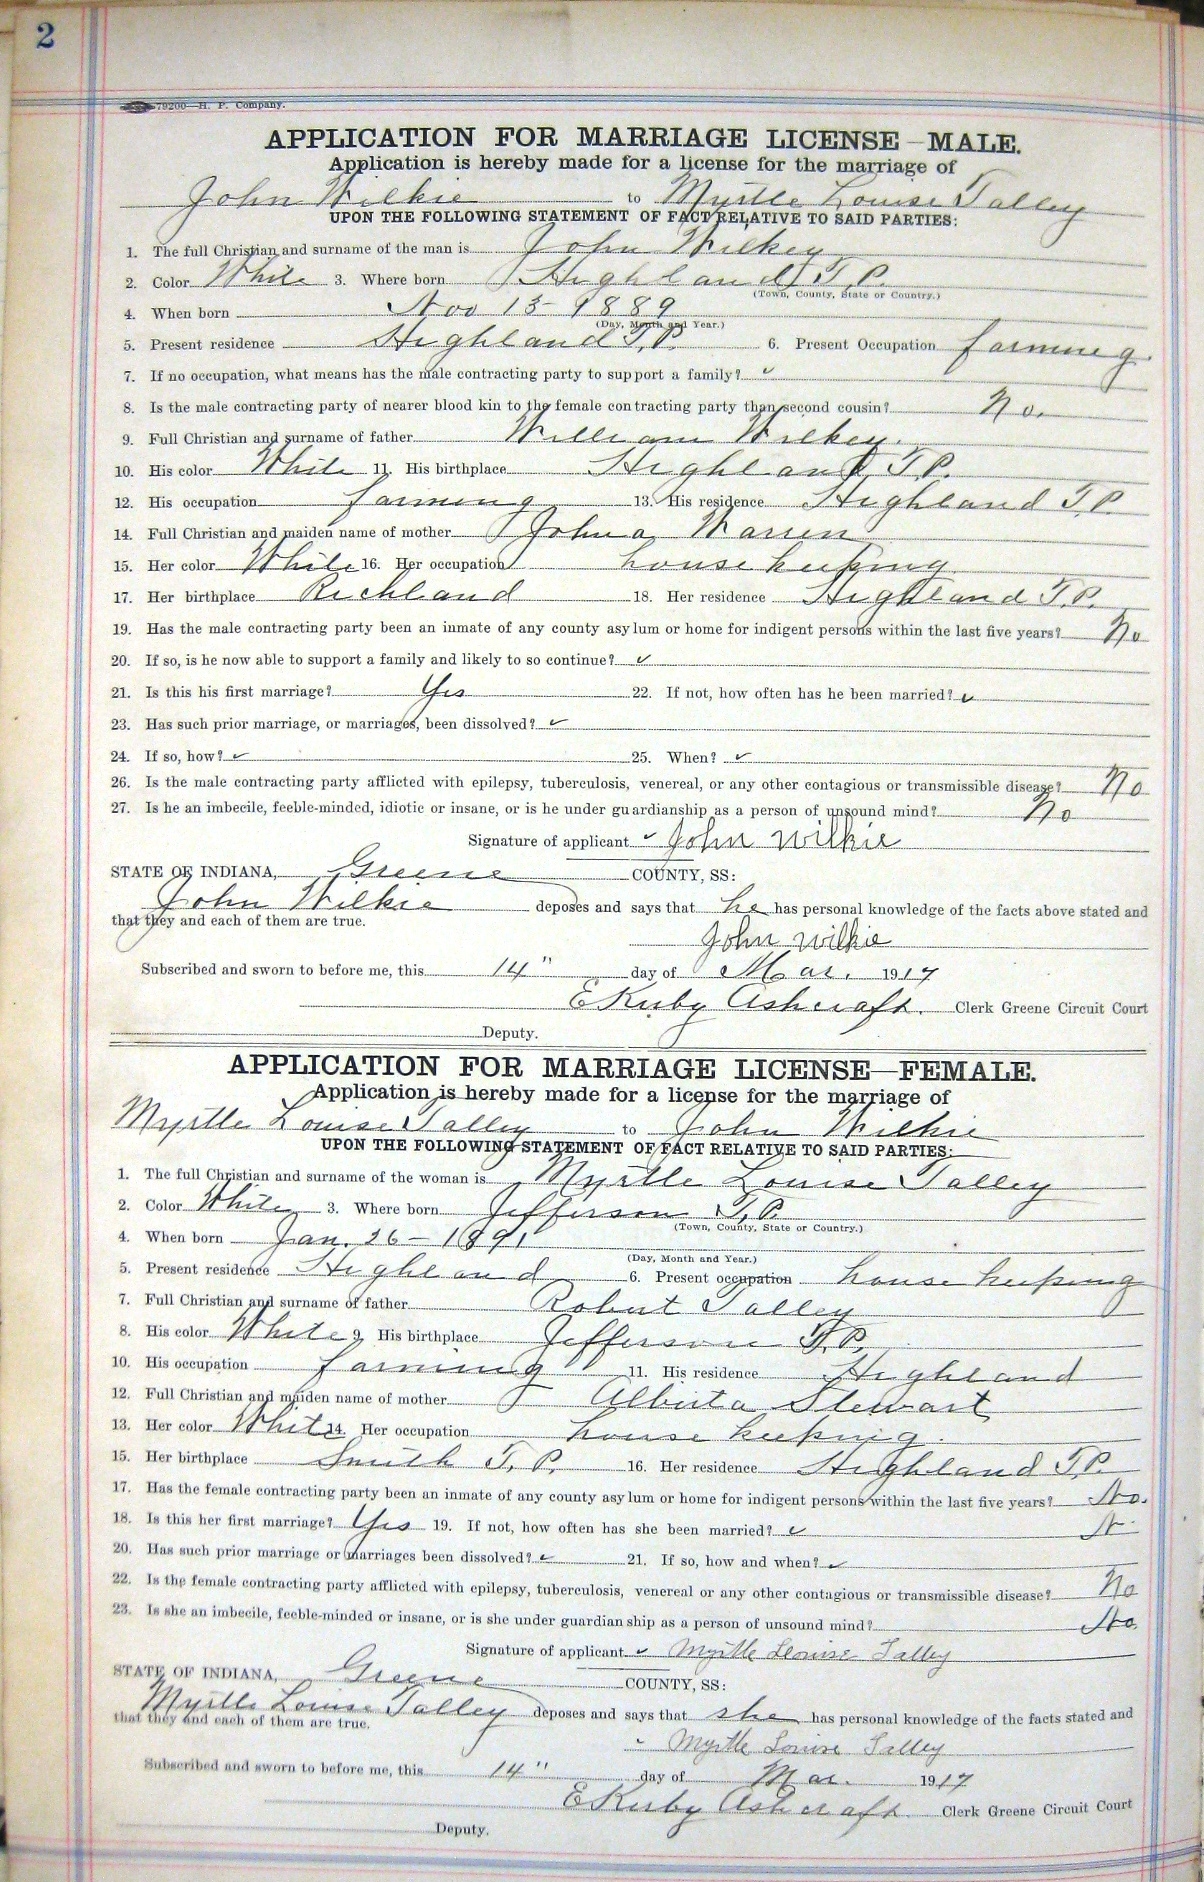 2
79200—H. P. Company.
APPLICATION FOR MARRIAGE LICENSE—MALE.
Application is hereby made for a license for the marriage of
John Wilkie to Myrtle Louise Talley
UPON THE FOLLOWING STATEMENT OF FACT RELATIVE TO SAID PARTIES:
1. The full Christian and surname of the man is John Wilkey
2. Color White 3. Where born Highland T.P.
(Town, County, State or Country.)
4. When born Nov 13 - 1889
(Day, Month and Year.)
5. Present residence Highland T.P. 6. Present Occupation farming.
7. If no occupation, what means has the male contracting party to support a family? ✓
8. Is the male contracting party of nearer blood kin to the female contracting party than second cousin? No.
9. Full Christian and surname of father William Wilkey.
10. His color White 11. His birthplace Highland T.P.
12. His occupation farming 13. His residence Highland T.P.
14. Full Christian and maiden name of mother Warren
15. Her color White 16. Her occupation house keeping
17. Her birthplace Richland 18. Her residence Highland T.P.
19. Has the male contracting party been an inmate of any county asylum or home for indigent persons within the last five years? No
20. If so, is he now able to support a family and likely to so continue? ✓
21. Is this his first marriage? Yes 22. If not, how often has he been married? ✓
23. Has such prior marriage, or marriages, been dissolved? ✓
24. If so, how? ✓ 25. When? ✓
26. Is the male contracting party afflicted with epilepsy, tuberculosis, venereal, or any other contagious or transmissible disease? No
27. Is he an imbecile, feeble-minded, idiotic or insane, or is he under guardianship as a person of unsound mind? No
Signature of applicant ✓ John Wilkie
STATE OF INDIANA, Greene COUNTY, SS:
John Wilkie deposes and says that he has personal knowledge of the facts above stated and
that they and each of them are true.
John Wilkie
Subscribed and sworn to before me, this 14" day of Mar. 1917
E Kirby Ashcraft. Clerk Greene Circuit Court
Deputy.
APPLICATION FOR MARRIAGE LICENSE—FEMALE.
Application is hereby made for a license for the marriage of
Myrtle Louise Talley to John Wilkie
UPON THE FOLLOWING STATEMENT OF FACT RELATIVE TO SAID PARTIES:
1. The full Christian and surname of the woman is Myrtle Louise Talley
2. Color White 3. Where born Jefferson T.P.
(Town, County, State or Country.)
4. When born Jan. 26 - 1891
(Day, Month and Year.)
5. Present residence Highland 6. Present occupation house keeping
7. Full Christian and surname of father Robert Talley
8. His color White 9. His birthplace Jefferson T.P.
10. His occupation farming 11. His residence Highland
12. Full Christian and maiden name of mother Alberta Stewart
13. Her color White 14. Her occupation house keeping.
15. Her birthplace Smith T.P. 16. Her residence Highland T.P.
17. Has the female contracting party been an inmate of any county asylum or home for indigent persons within the last five years? No.
18. Is this her first marriage? Yes 19. If not, how often has she been married? ✓ N
20. Has such prior marriage or marriages been dissolved? ✓ 21. If so, how and when? ✓
22. Is the female contracting party afflicted with epilepsy, tuberculosis, venereal or any other contagious or transmissible disease? No
23. Is she an imbecile, feeble-minded or insane, or is she under guardian ship as a person of unsound mind? No
Signature of applicant ✓ Myrtle Louise Talley
STATE OF INDIANA, Greene COUNTY, SS:
Myrtle Louise Talley deposes and says that she has personal knowledge of the facts stated and
that they and each of them are true.
Myrtle Louise Talley
Subscribed and sworn to before me, this 14" day of Mar. 1917
E Kirby Ashcraft. Clerk Greene Circuit Court
Deputy.